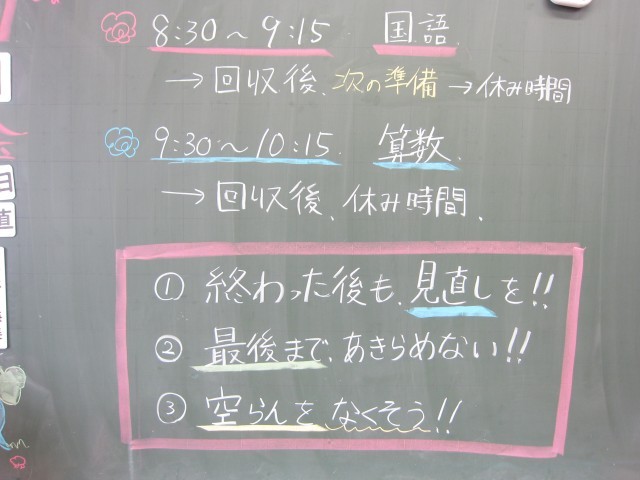 8:30〜9:15 国語
→回収後、次の準備→休み時間
9:30〜10:15 算数
→回収後、休み時間、
① 終わった後も、見直しを!!
② 最後まで、あきらめない!!
③ 空らんをなくそう!!
金
日
直